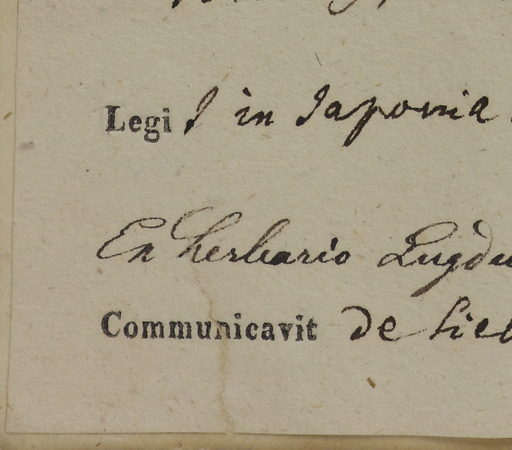 Legi J in Japonia
Ex herbario Lugdu
Communicavit de Sieb